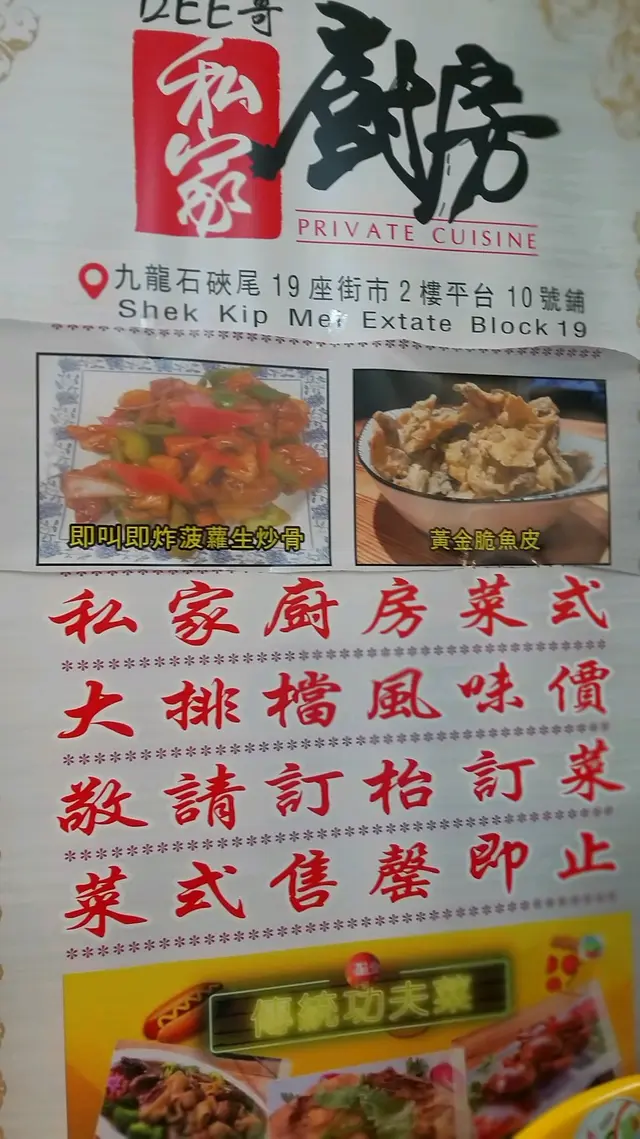 哥
私家
廚房
PRIVATE CUISINE
九龍石硤尾 19 座街市 2 樓平台 10 號鋪
Shek Kip Mei Extate Block 19
即叫即炸菠蘿生炒骨
黃金脆魚皮
私家廚房菜式
大排檔風味價
敬請訂枱訂菜
菜式售罄即止
傳統功夫菜